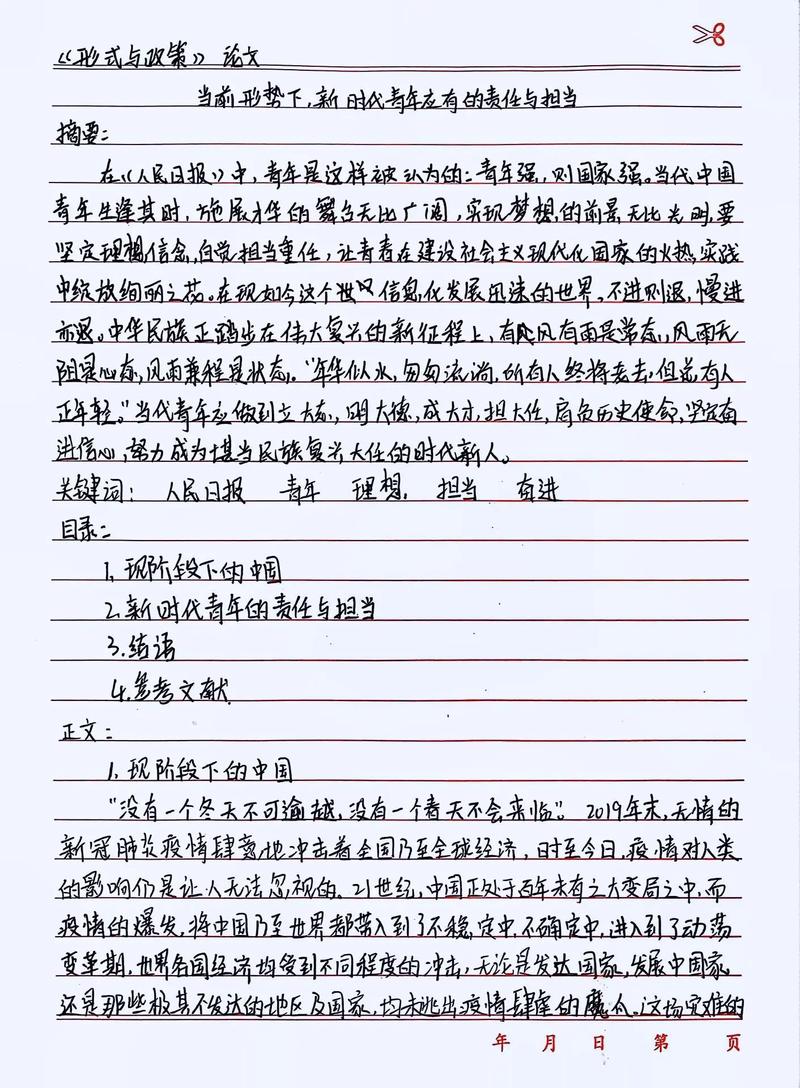 《形式与政策》 论文
当前形势下，新时代青年应有的责任与担当
摘要：
在《人民日报》中，青年是这样被认为的：青年强，则国家强。当代中国
青年生逢其时，施展才华的舞台无比广阔，实现梦想的前景无比光明，要
坚定理想信念，自觉担当重任，让青春在建设社会主义现代化国家的火热实践
中绽放绚丽之花。在现如今这个世 信息化发展迅速的世界，不进则退，慢进
亦退。中华民族正踏步在伟大复兴的新征程上，有风有雨是常态，风雨无
阻是心态，风雨兼程是状态。“年华似水，匆匆流淌，所有人终将老去，但总有人
正年轻。”当代青年应做到立大志，明大德，成大才，担大任，肩负历史使命，坚定奋
进信心，努力成为堪当民族复兴大任的时代新人。
关键词： 人民日报 青年 理想 担当 奋进
目录：
1、现阶段下的中国
2、新时代青年的责任与担当
3、结语
4、参考文献
正文：
1、现阶段下的中国
“没有一个冬天不可逾越，没有一个春天不会来临”。2019年末，无情的
新冠肺炎疫情肆 地冲击着全国乃至全球经济，时至今日，疫情对人类
的影响仍是让人无法忽视的。21世纪，中国正处于百年未有之大变局之中，而
疫情的爆发，将中国乃至世界都带入到了不稳定中，不确定中，进入到了动荡
变革期，世界各国经济均受到不同程度的冲击，无论是发达国家，发展中国家
还是那些极其不发达的地区及国家，均未逃出疫情肆虐的魔爪。这场灾难的
年 月 日 第 页